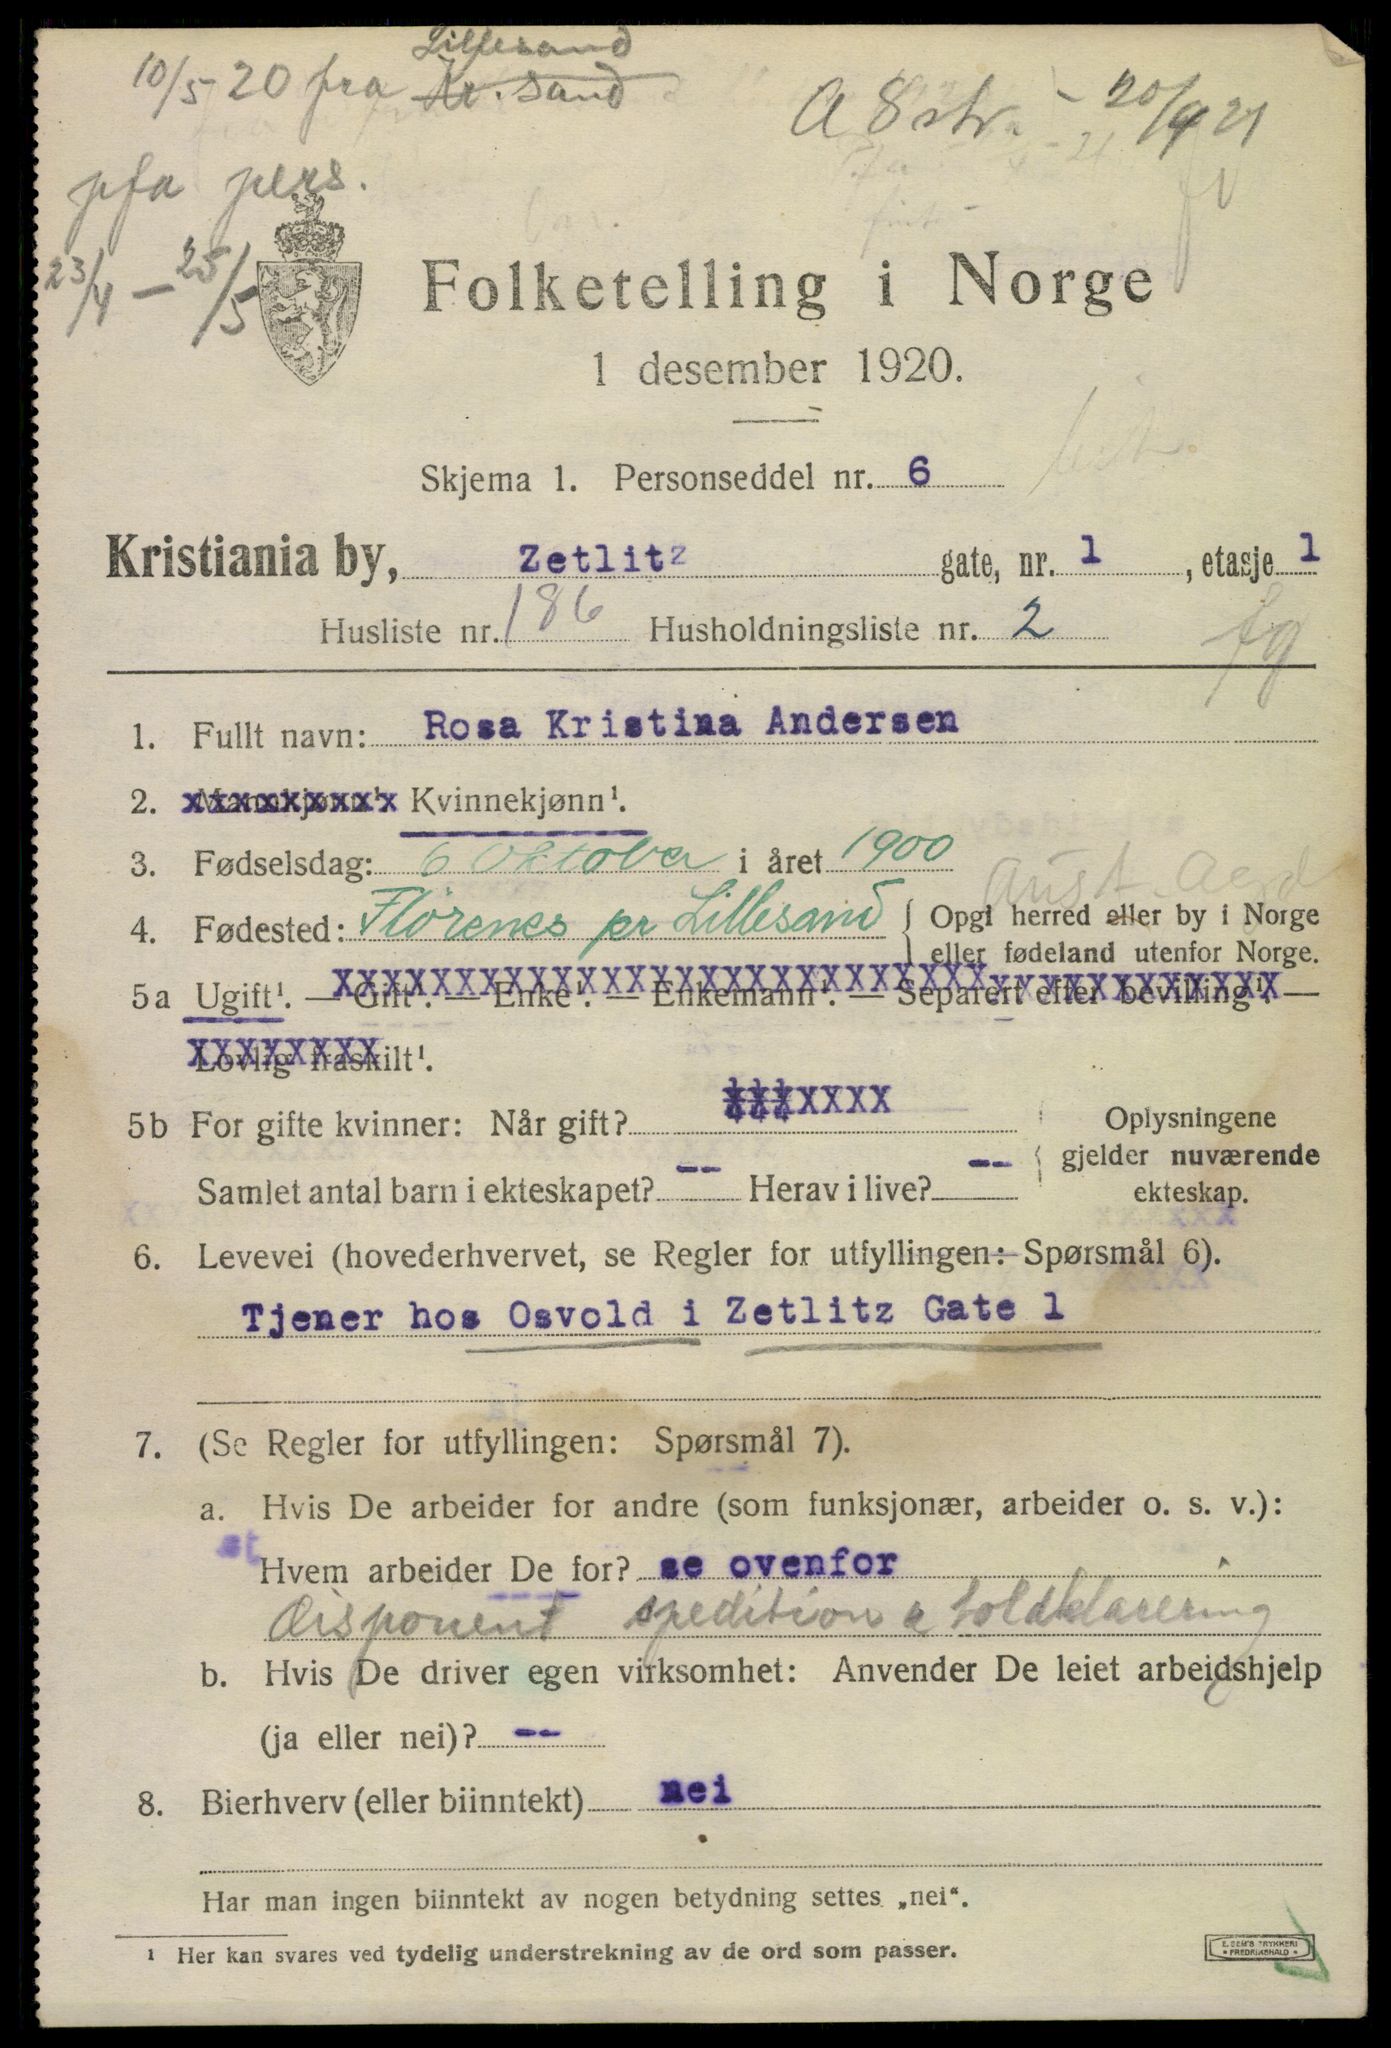 Lillesand
10/5 20 fra Kr.sand
A 8 str. - 20/9 21
pfa pers.
23/4 - 25/5
Folketelling i Norge
1 desember 1920.
Skjema 1. Personseddel nr. 6
Kristiania by, Zetlitz gate, nr. 1, etasje 1
Husliste nr. 186 Husholdningsliste nr. 2
fg
1. Fullt navn: Rosa Kristina Andersen
2. Mannkjønn¹. Kvinnekjønn¹.
3. Fødselsdag: 6 Oktober i året 1900
Aust. Agd.
4. Fødested: Flörenes pr Lillesand { Opgi herred eller by i Norge
eller fødeland utenfor Norge.
5a Ugift¹. — Gift¹. — Enke¹. — Enkemann¹. — Separert efter bevilling¹. —
Lovlig fraskilt¹.
5b For gifte kvinner: Når gift? XXXXXXX Oplysningene
gjelder nuværende
Samlet antal barn i ekteskapet? -- Herav i live? -- ekteskap.
6. Levevei (hovederhvervet, se Regler for utfyllingen: Spørsmål 6).
Tjener hos Osvold i Zetlitz Gate 1
7. (Se Regler for utfyllingen: Spørsmål 7).
a. Hvis De arbeider for andre (som funksjonær, arbeider o. s. v.):
Hvem arbeider De for? se ovenfor
disponent spedition & toldklarering
b. Hvis De driver egen virksomhet: Anvender De leiet arbeidshjelp
(ja eller nei)? --
8. Bierhverv (eller biinntekt) nei
Har man ingen biinntekt av nogen betydning settes „nei“.
¹ Her kan svares ved tydelig understrekning av de ord som passer.
E. SEM'S TRYKKERI
• FREDRIKSHALD •